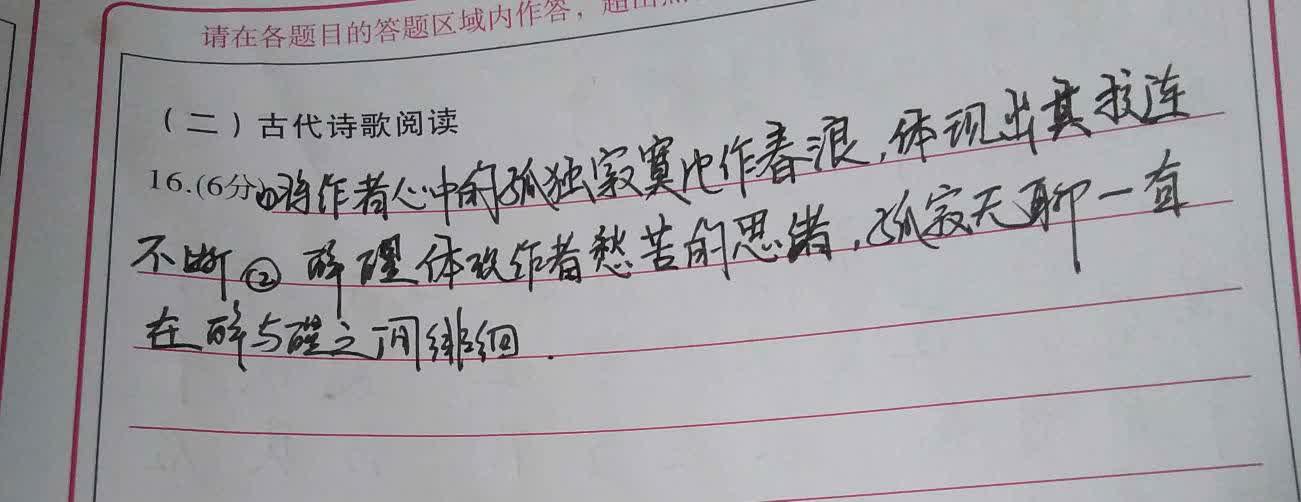 请在各题目的答题区域内作答，超出
（二）古代诗歌阅读
16.(6分)①将作者心中的孤独寂寞比作春浪，体现出其接连
不断②醉醒体现作者愁苦的思绪，孤寂无聊一直
在醉与醒之间徘徊．